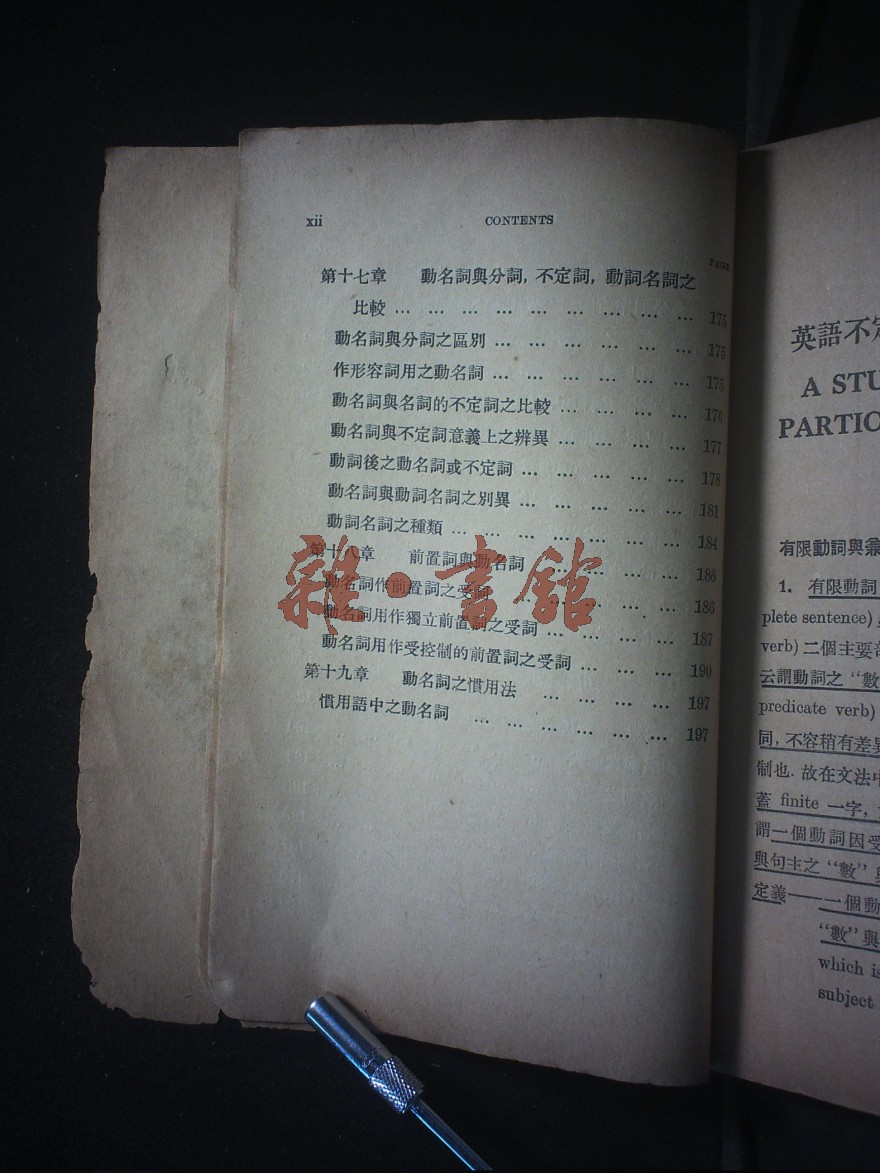 xii CONTENTS
PAGE
第十七章 動名詞與分詞, 不定詞, 動詞名詞之
比較 … … … … … … … … … … 175
動名詞與分詞之區別 … … … … … … 175
作形容詞用之動名詞 … … … … … … 175
動名詞與名詞的不定詞之比較 … … … … 176
動名詞與不定詞意義上之辨異 … … … … 177
動詞後之動名詞或不定詞 … … … … … 178
動名詞與動詞名詞之別異 … … … … … 181
動詞名詞之種類 … … … … … … … 184
第十八章 前置詞與動名詞 … … … … 186
動名詞作前置詞之受詞 … … … … … 186
動名詞用作獨立前置詞之受詞 … … … … 187
動名詞用作受控制的前置詞之受詞 … … … 190
第十九章 動名詞之慣用法 … … … … 197
慣用語中之動名詞 … … … … … … 197
雜·書館
英語不定
A STU
PARTIC
有限動詞與
1. 有限動詞
plete sentence)
verb) 二個主要
云謂動詞之 “數
predicate verb)
同, 不容稍有差異
制也. 故在文法中
蓋 finite 一字,
謂一個動詞因受
與句主之 “數”
定義——一個動
“數” 與
which is
subject